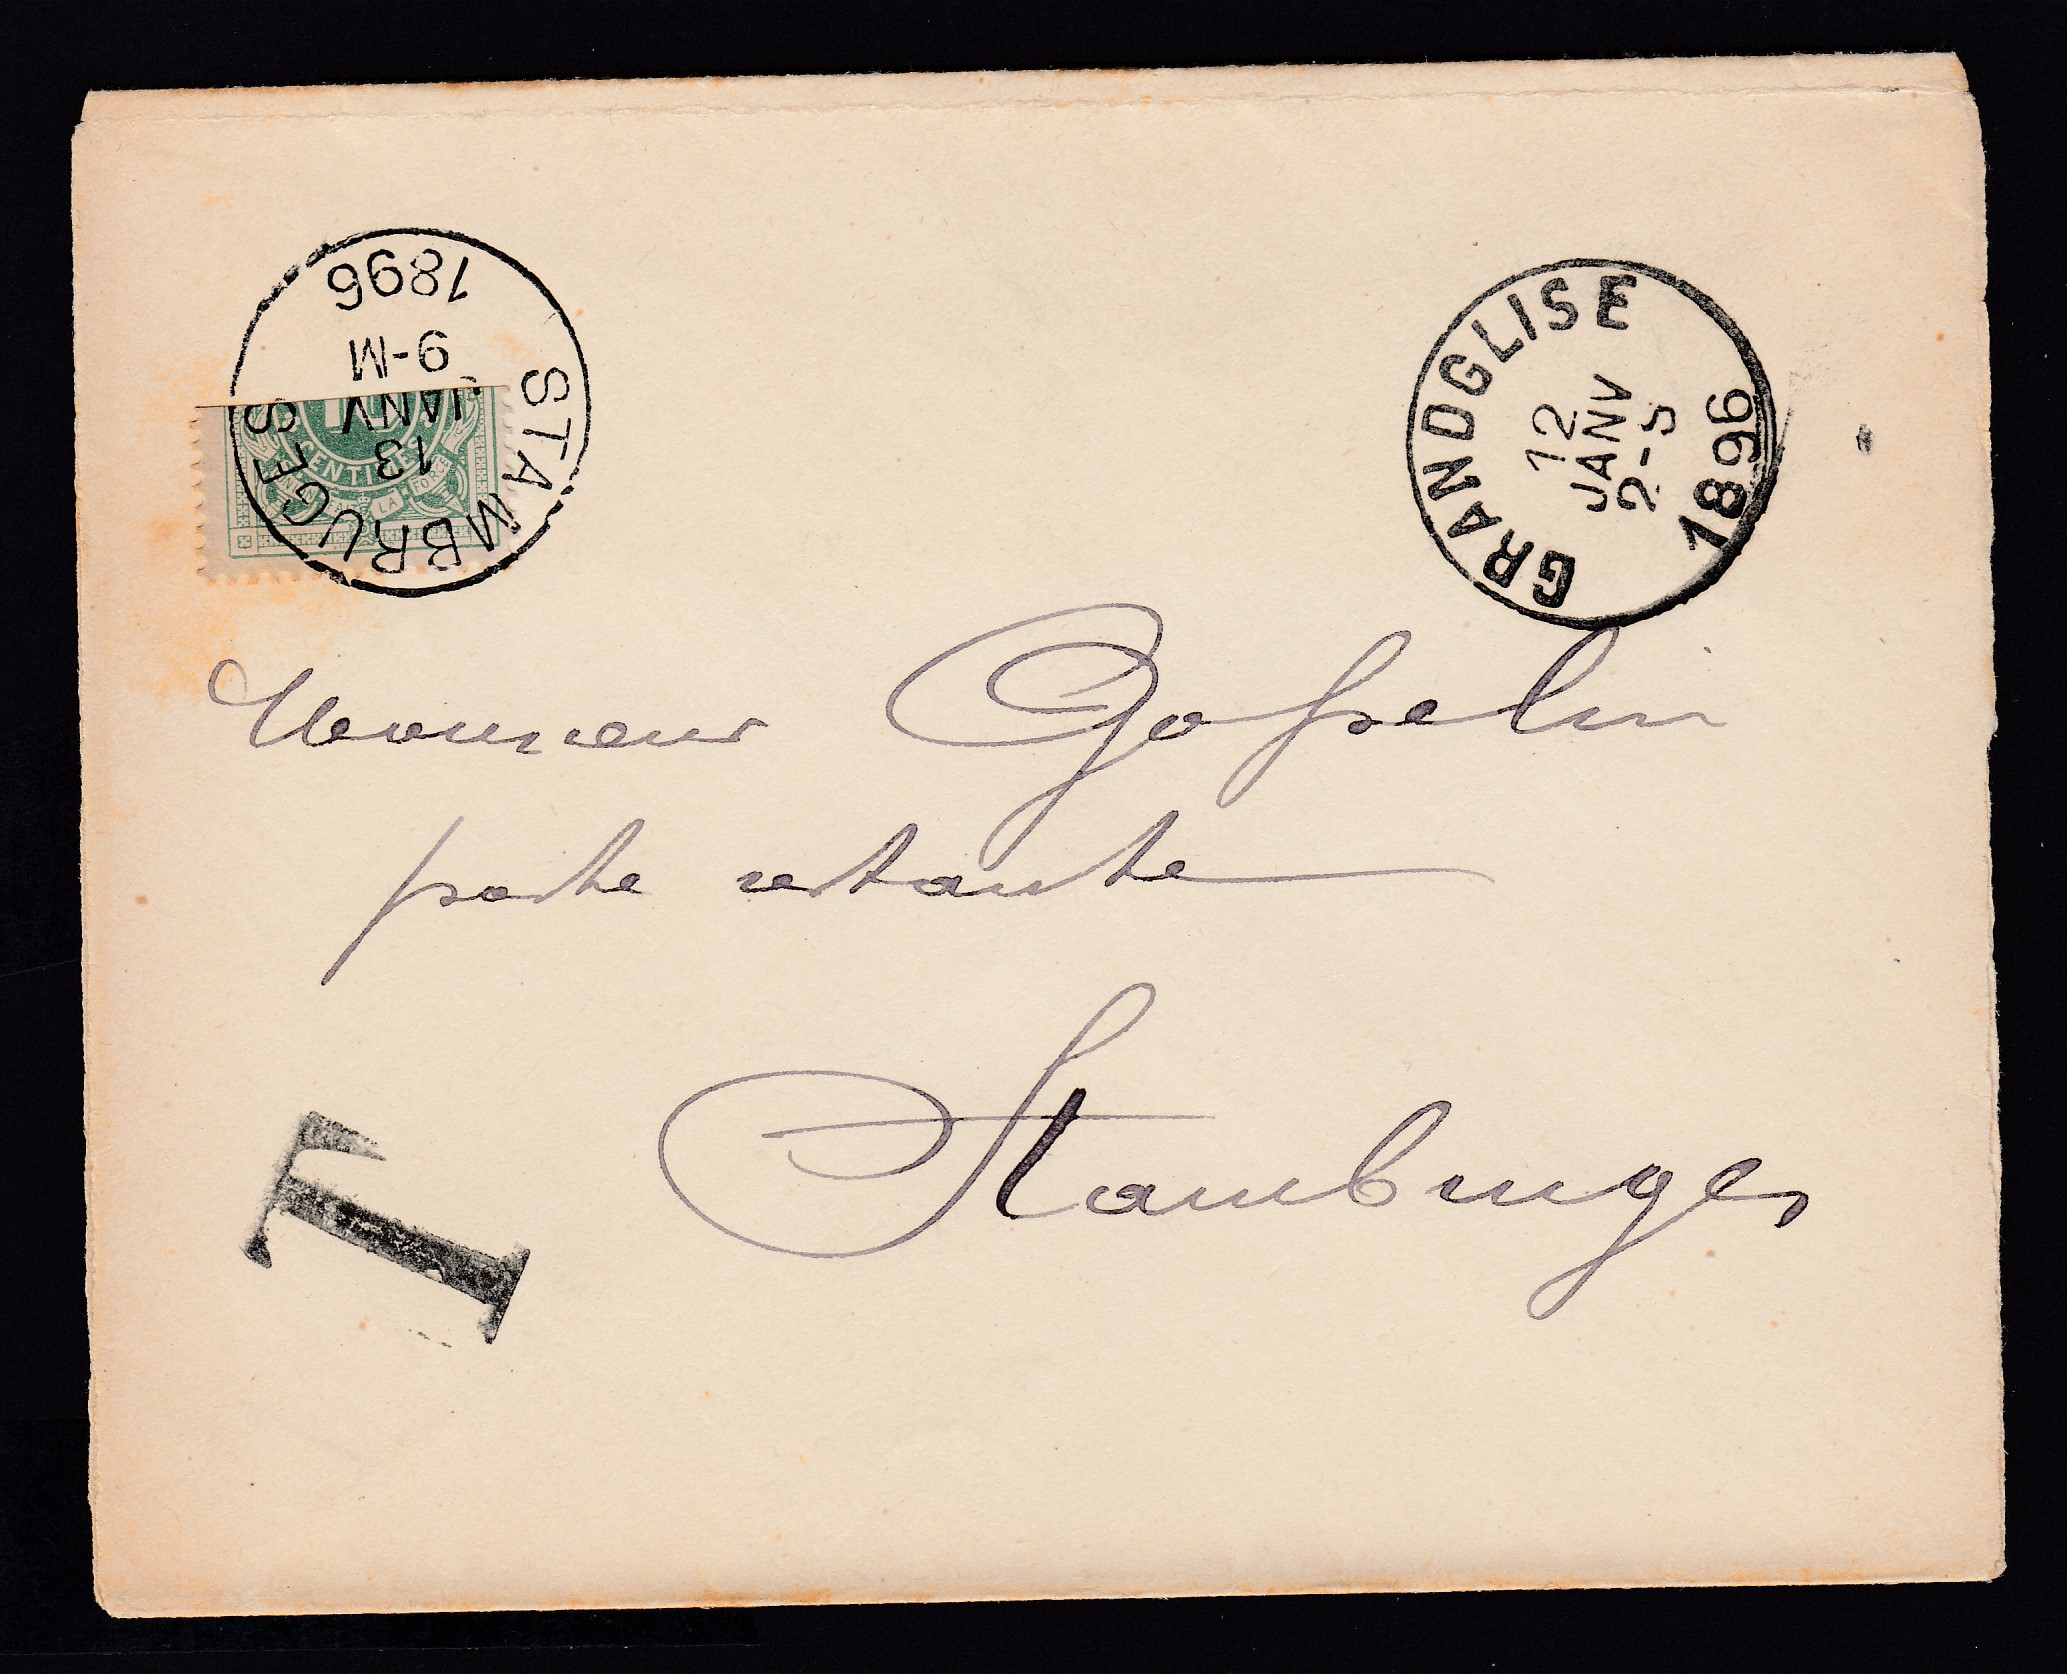 STAMBRUGES
13
JANV
9-M
1896
CENTIMES
LA FORCE
GRANDGLISE
12
JANV
2-5
1896
Monsieur Gosselin
poste restante
Stambruges
T